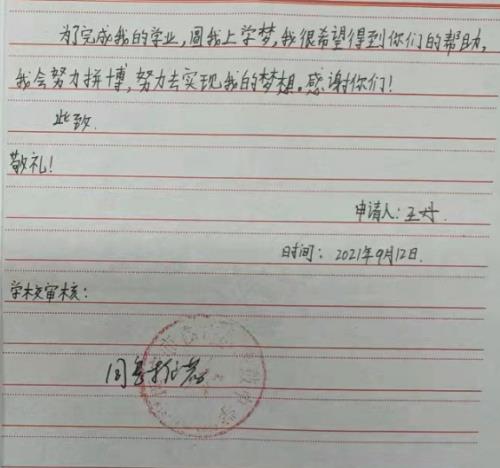 为了完成我的学业,圆我上学梦,我很希望得到你们的帮助,
我会努力拼博,努力去实现我的梦想。感谢你们!
此致
敬礼!
申请人:王丹
时间: 2021年9月12日
学校审核:
同意推荐